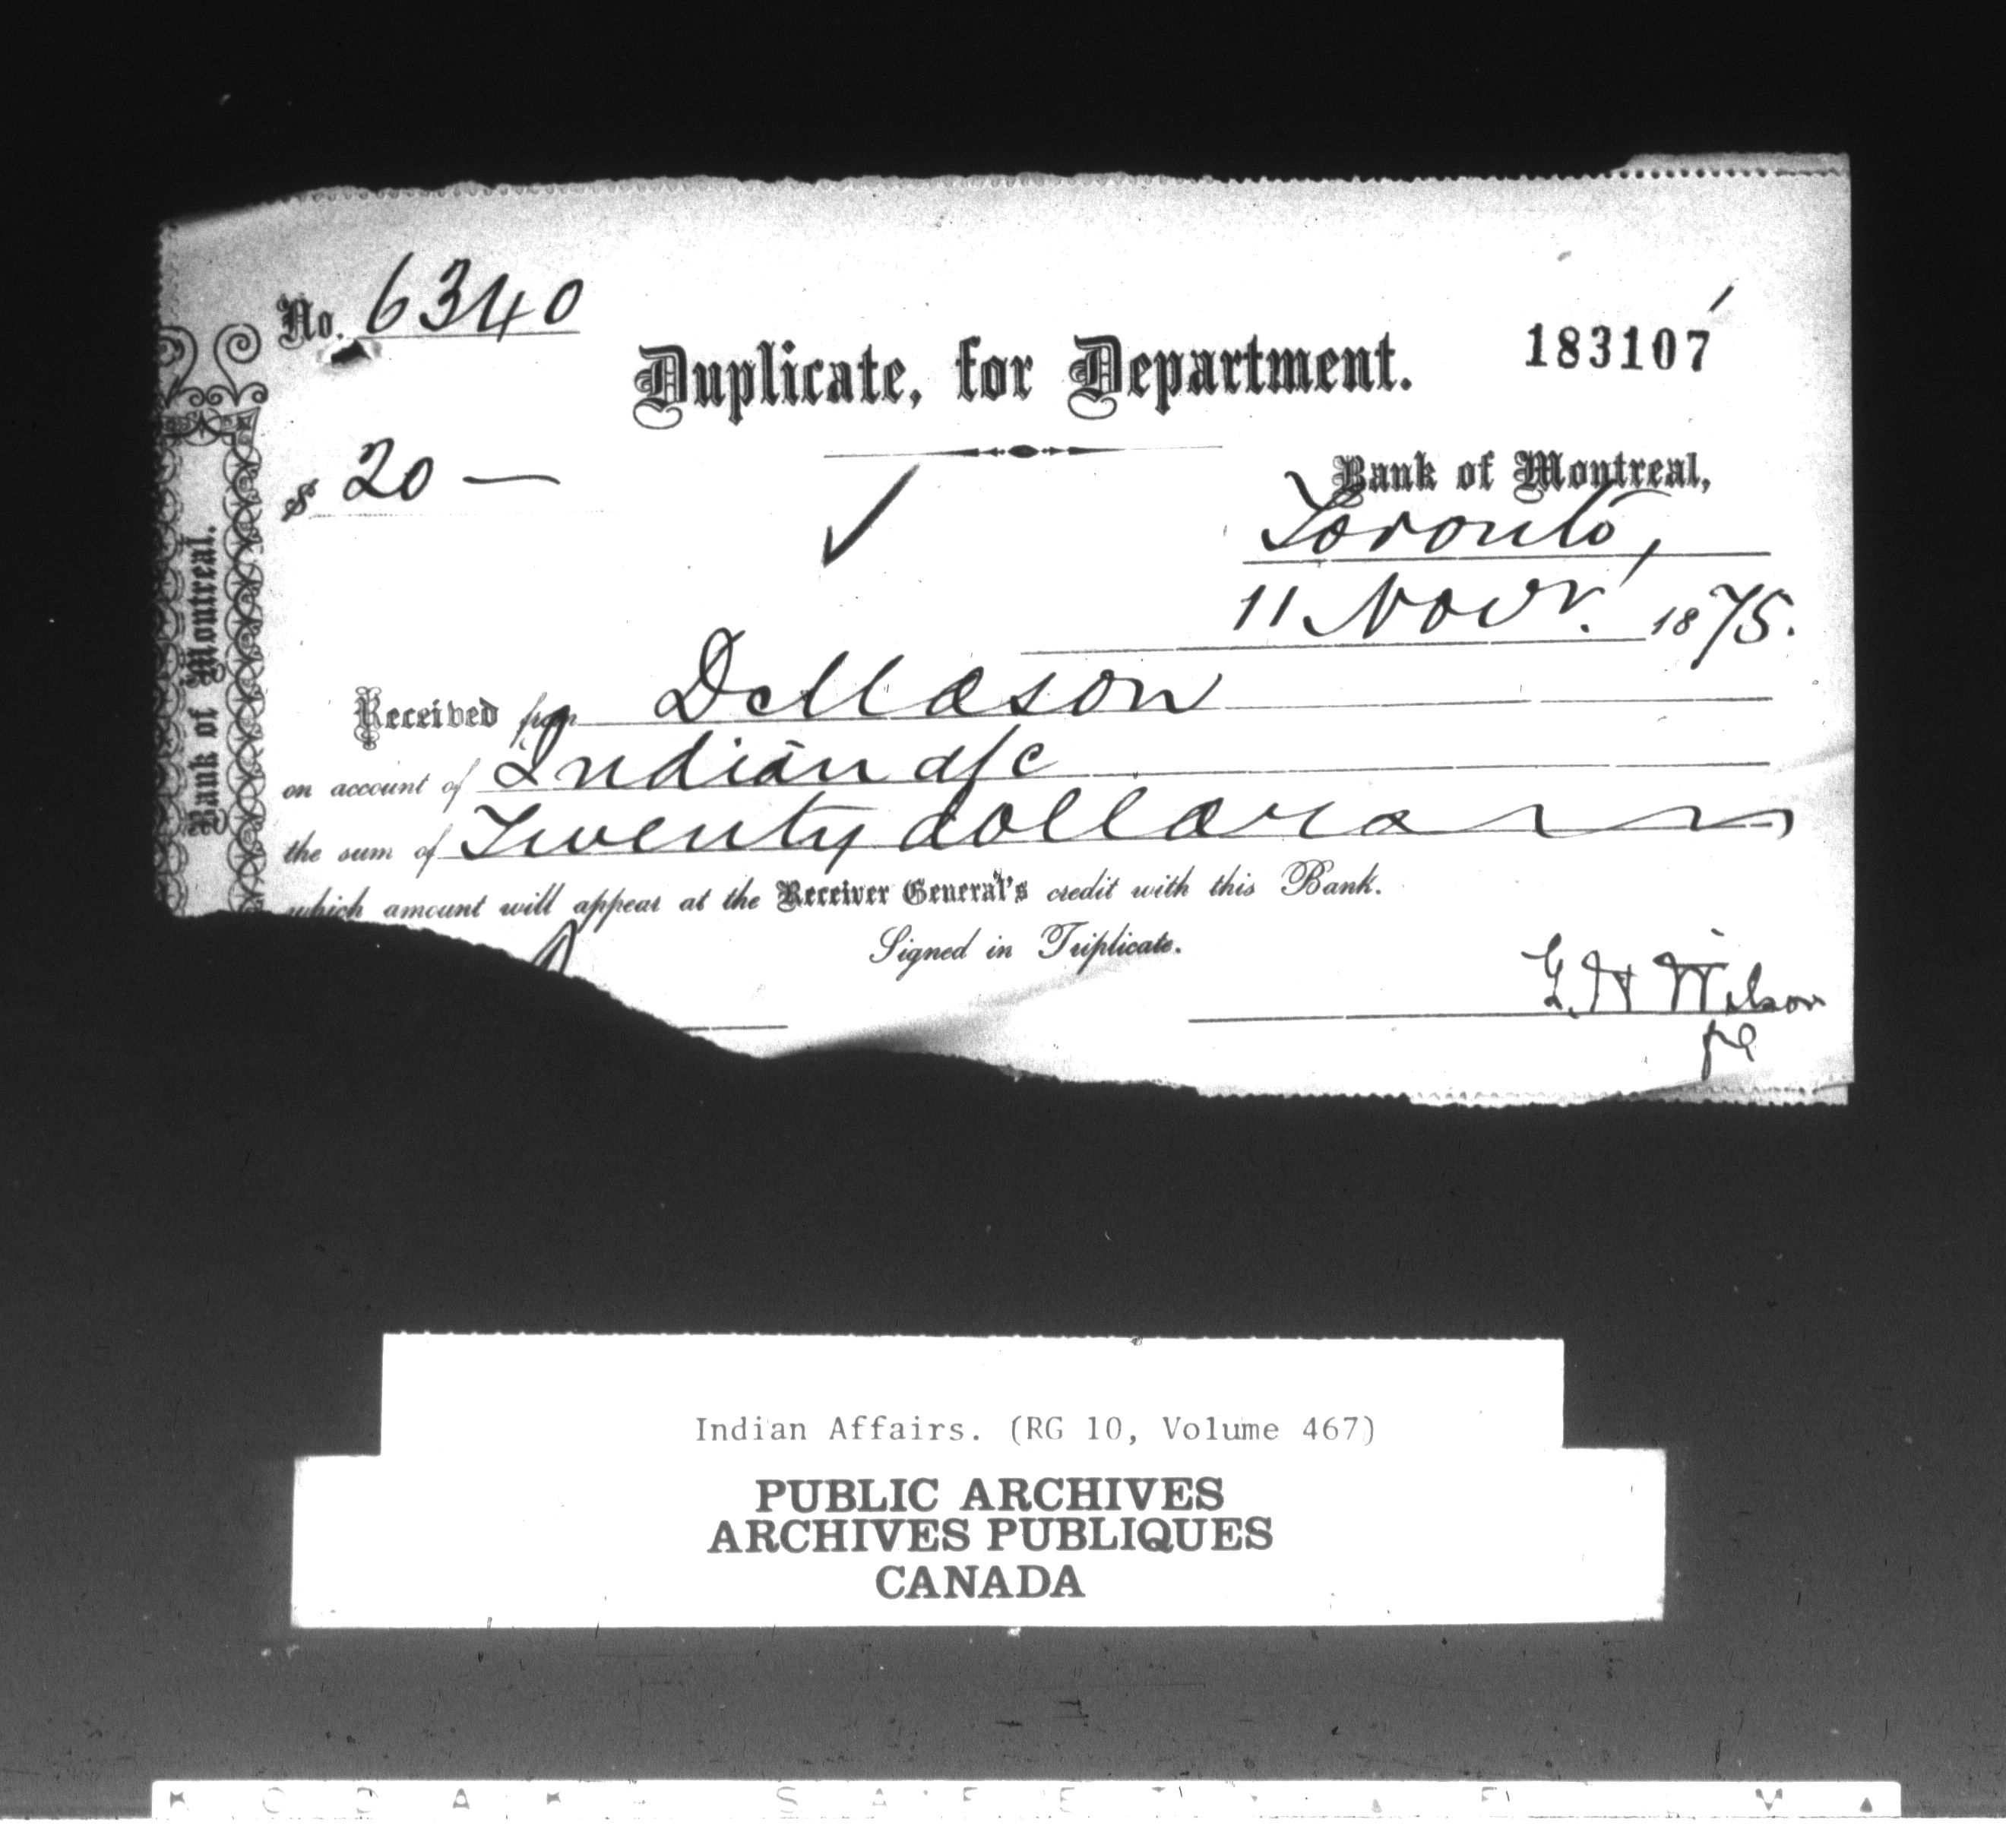 No. 6340
183107
Duplicate, for Department.
$ 20 —
Bank of Montreal,
Toronto,
11 Novr. 1875.
Received from D McMason
on account of Indian a/c
the sum of Twenty dollars
which amount will appear at the Receiver General's credit with this Bank.
Signed in Triplicate.
G. H Wilson
Bank of Montreal.
Indian Affairs. (RG 10, Volume 467)
PUBLIC ARCHIVES
ARCHIVES PUBLIQUES
CANADA